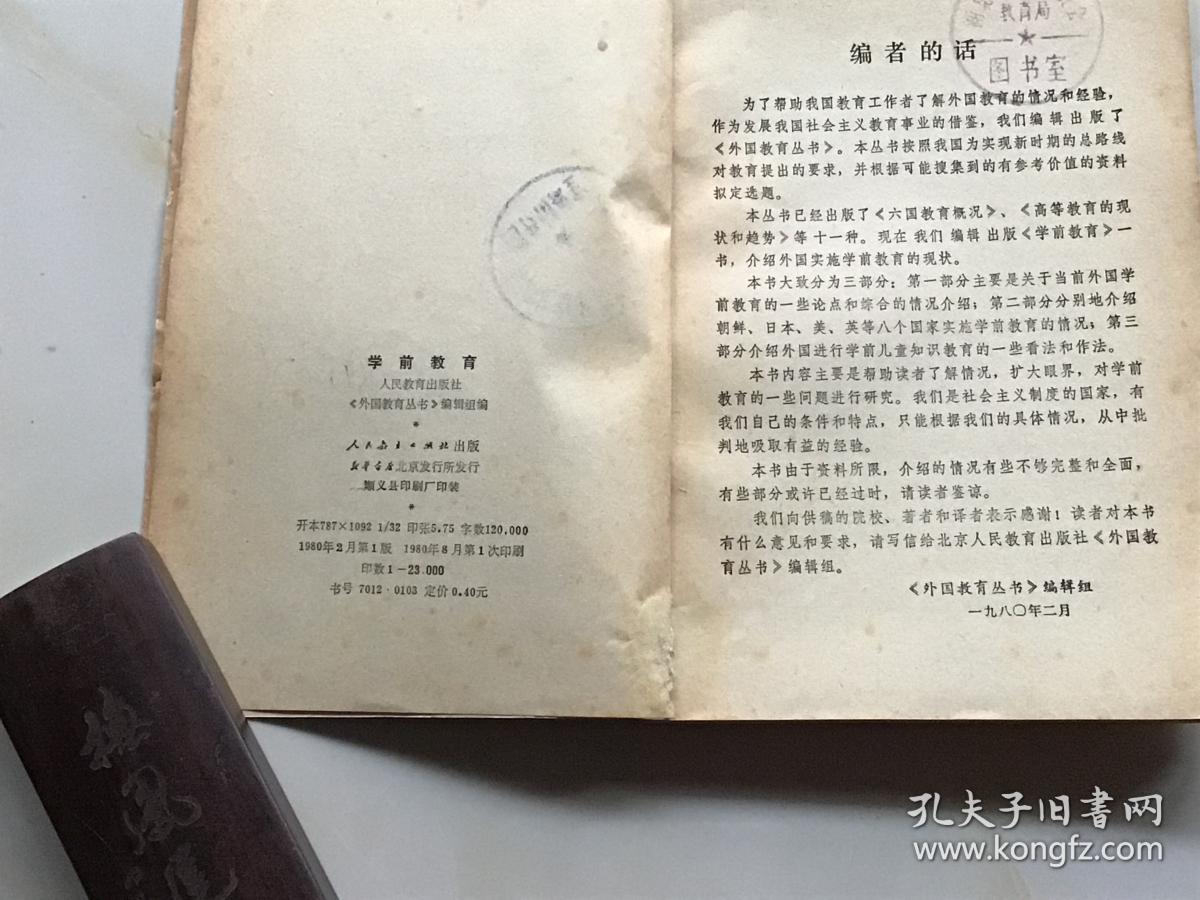 学前教育
人民教育出版社
《外国教育丛书》编辑组编
*
人民教育出版社出版
新华书店北京发行所发行
顺义县印刷厂印装
*
开本787×1092 1/32 印张5.75 字数120,000
1980年2月第1版 1980年8月第1次印刷
印数1-23,000
书号 7012·0103 定价0.40元
教育局
图书室
编者的话
为了帮助我国教育工作者了解外国教育的情况和经验，
作为发展我国社会主义教育事业的借鉴，我们编辑出版了
《外国教育丛书》。本丛书按照我国为实现新时期的总路线
对教育提出的要求，并根据可能搜集到的有参考价值的资料
拟定选题。
本丛书已经出版了《六国教育概况》、《高等教育的现
状和趋势》等十一种。现在我们编辑出版《学前教育》一
书，介绍外国实施学前教育的现状。
本书大致分为三部分：第一部分主要是关于当前外国学
前教育的一些论点和综合的情况介绍；第二部分分别地介绍
朝鲜、日本、美、英等八个国家实施学前教育的情况；第三
部分介绍外国进行学前儿童知识教育的一些看法和作法。
本书内容主要是帮助读者了解情况，扩大眼界，对学前
教育的一些问题进行研究。我们是社会主义制度的国家，有
我们自己的条件和特点，只能根据我们的具体情况，从中批
判地吸取有益的经验。
本书由于资料所限，介绍的情况有些不够完整和全面，
有些部分或许已经过时，请读者鉴谅。
我们向供稿的院校、著者和译者表示感谢！读者对本书
有什么意见和要求，请写信给北京人民教育出版社《外国教
育丛书》编辑组。
《外国教育丛书》编辑组
一九八〇年二月
孔夫子旧书网
www.kongfz.com